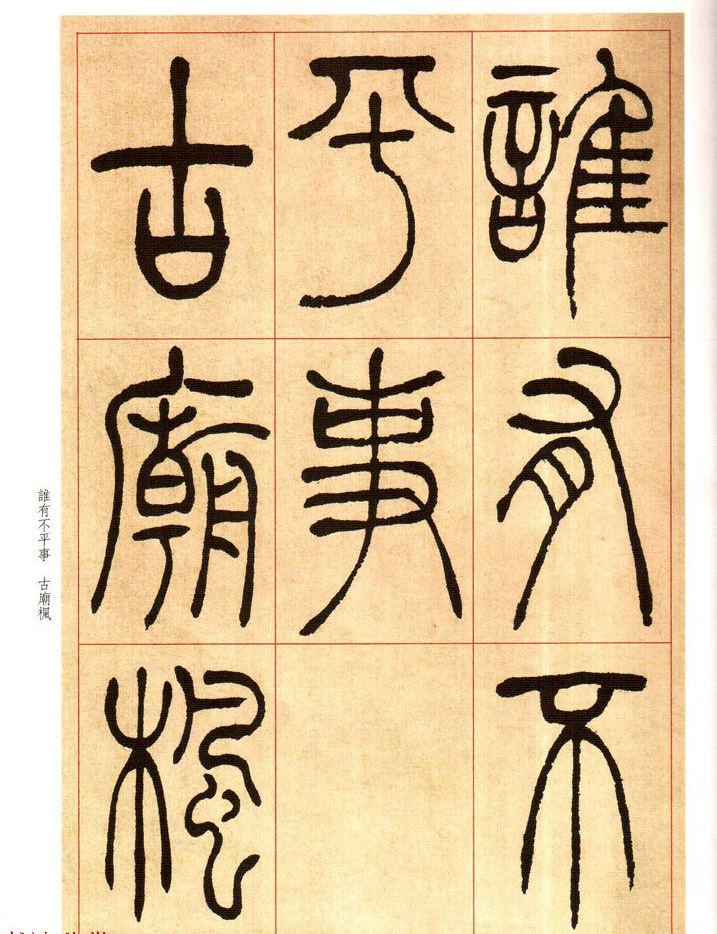 誰有不
平事
古廟楓
誰有不平事 古廟楓